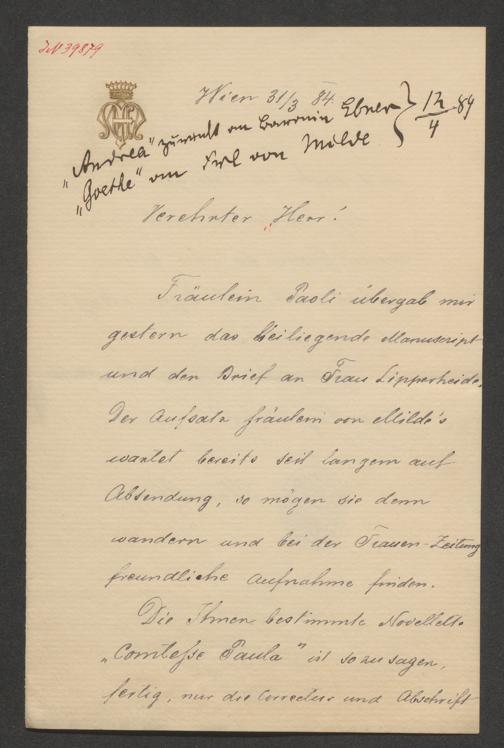 IN 39879
Wien 31/3 84.
"Andrea" zurück an Baronin Ebner
"Goethe" von Frl von Milde
12/4 84
Verehrter Herr!
Fräulein Paoli übergab mir
gestern das beiliegende Manuscript
und den Brief an Frau Lipperheide.
Der Aufsatz Fräulein von Milde's
wartet bereits seit langem auf
Absendung, so mögen sie denn
wandern und bei der Frauen-Zeitung
freundliche Aufnahme finden.
Die Ihnen bestimmte Novellette
„Comtesse Paula" ist sozusagen,
fertig, nur die Correctur und Abschrift